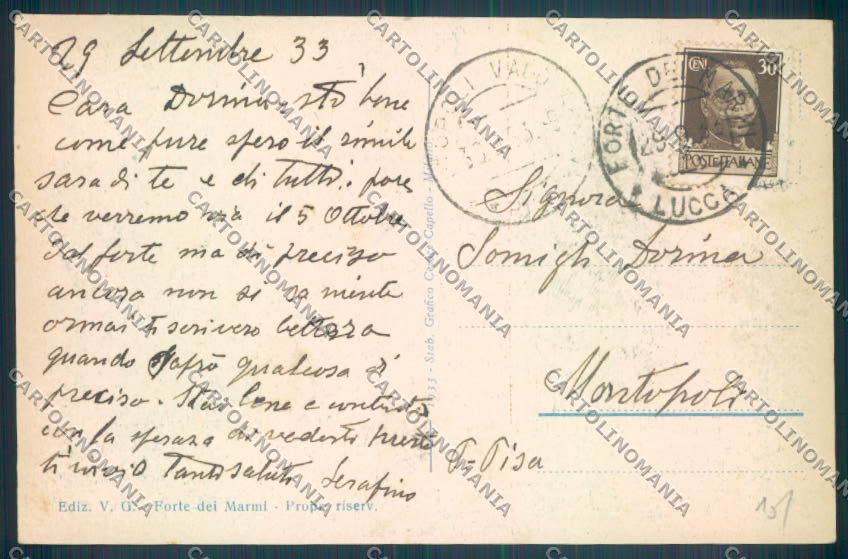 29 Settembre 33
Cara Dorina sto bene
come pure spero il simile
sara di te e di tutti, pare
che verremo via il 5 Ottobre
dal forte ma di preciso
ancora non si sa niente
ormai ti scrivero lettera
quando sapro qualcosa di
preciso. Stai bene e contenta
con la speraza di vederti presto
ti invio Tanti saluti Serafino
Ediz. V. G. - Forte dei Marmi - Propr. riserv.
Stab. Grafico Cesare Capello - Milano
CENT 30
POSTE ITALIANE
FORTE DEI MARMI
LUCCA
MONTOPOLI VALD
Signora
Somigli Dorina
Montopoli
P-Pisa
CARTOLINOMANIA